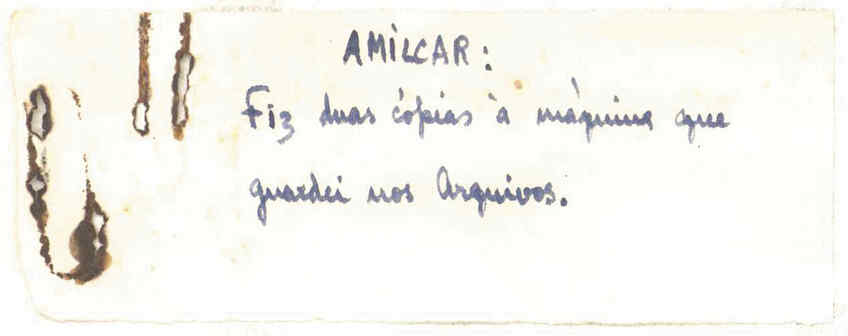 AMÍLCAR:
Fiz duas cópias à máquina que
guardei nos Arquivos.